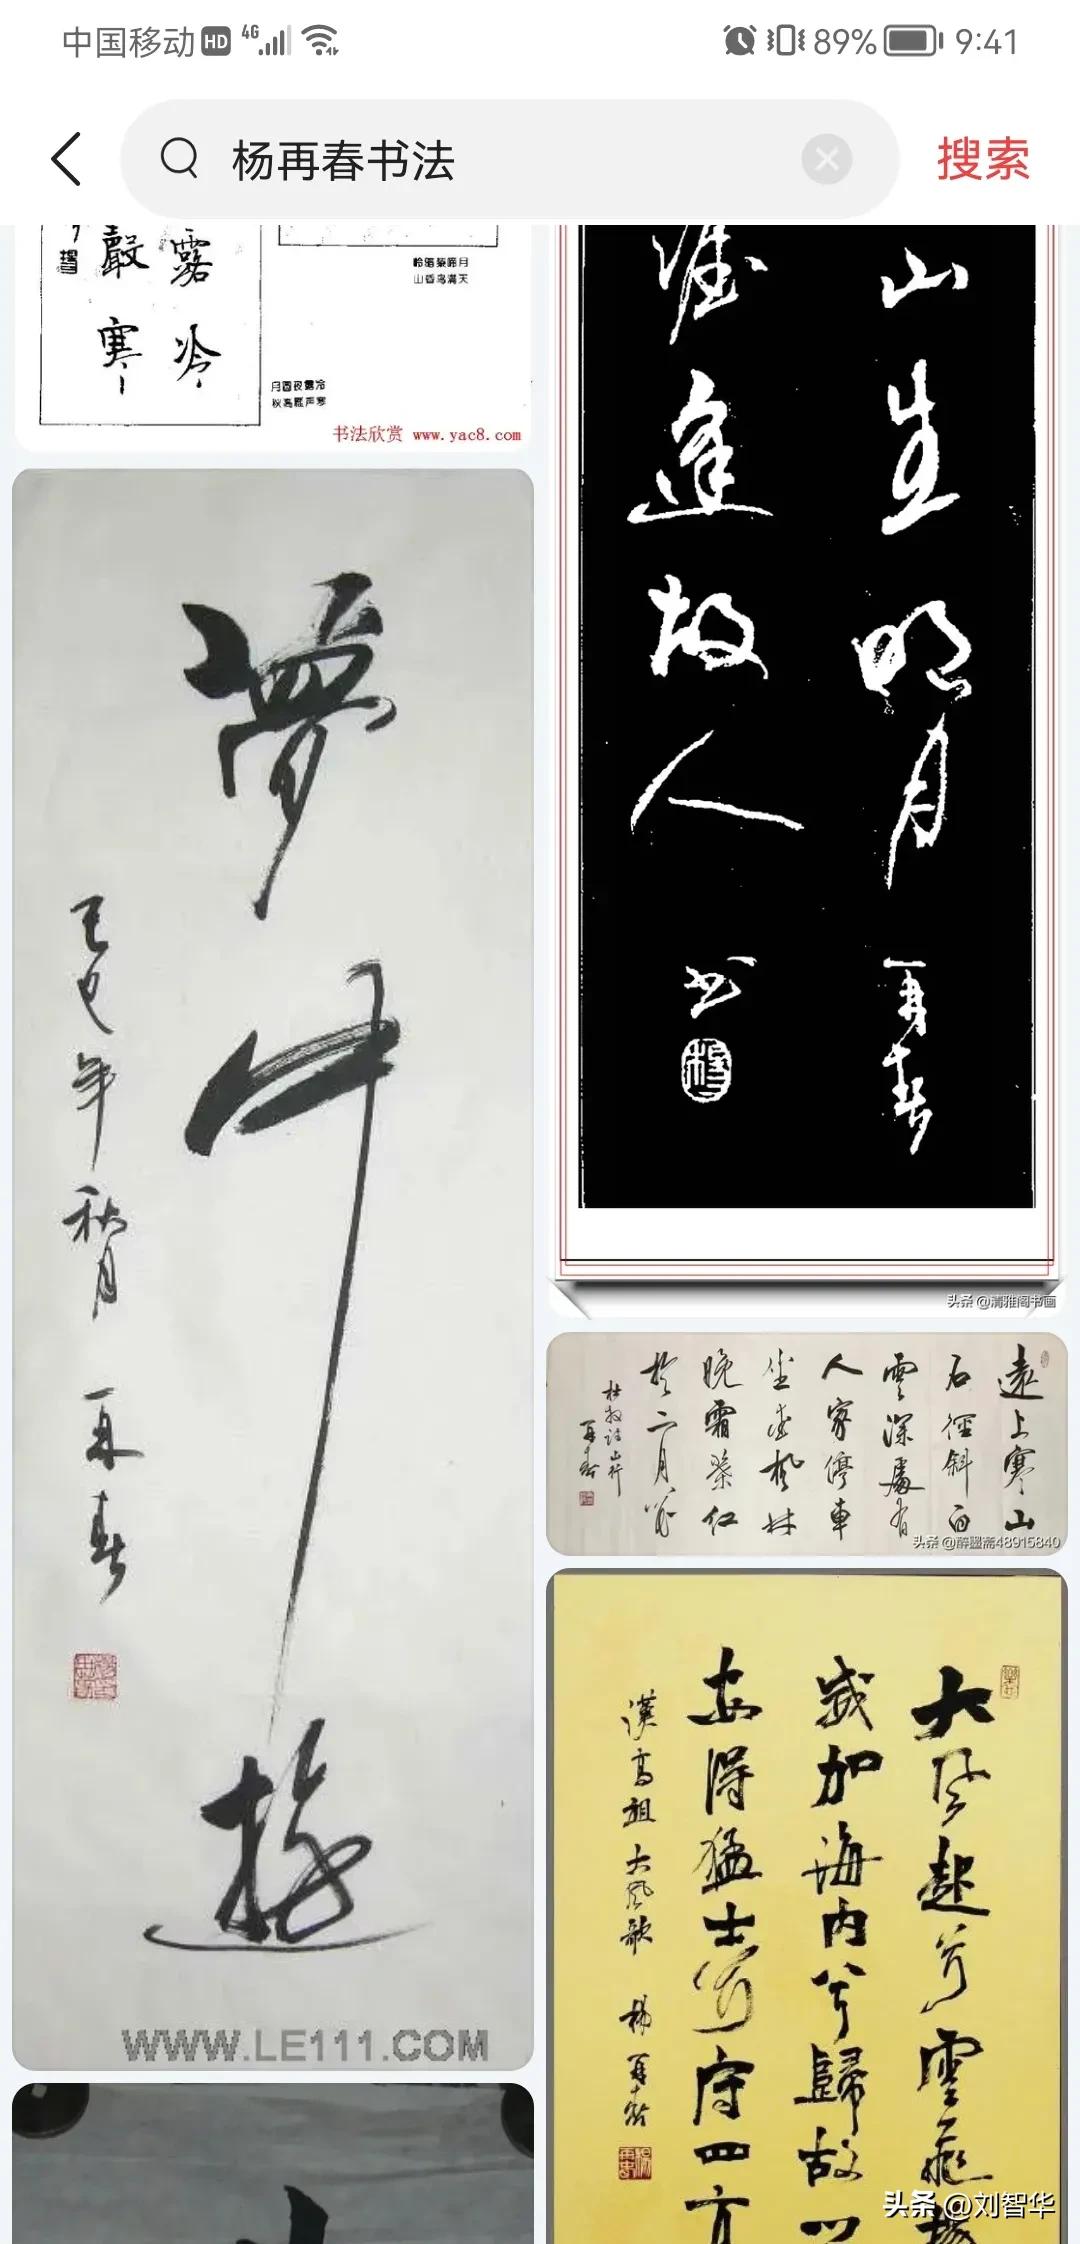 中国移动 HD 4G 89% 9:41
杨再春书法
搜索
露冷
聲寒
月满天
山昏鸟
月圆夜露冷
秋高雁声寒
书法欣赏 www.yac8.com
夢中遊
己巳年秋月 再春
WWW.LE111.COM
山生明月 再春
逢故人 书
头条 @清雅阁书画
遠上寒山
石徑斜白
雲深處有
人家停車
坐愛楓林
晚霜葉红
於二月花
杜牧诗山行
再春
头条 @醉墨斋48915840
大风起兮雲飛揚
威加海内兮歸故
安得猛士兮守四方
漢高祖大風歌 楊再春
头条 @刘智华